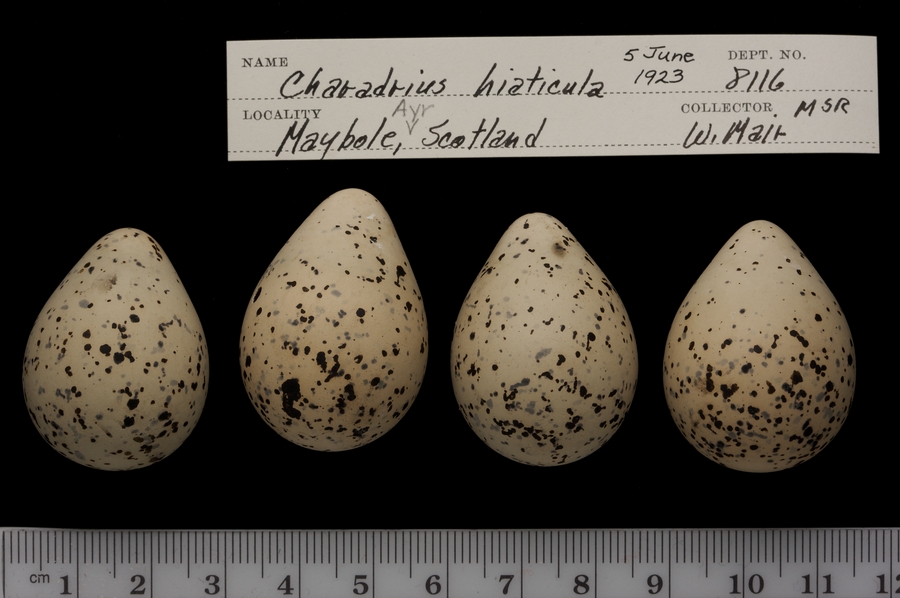 NAME Charadrius hiaticula 5 June 1923 DEPT. NO. 8116
LOCALITY Maybole, Ayr Scotland COLLECTOR W. Mair MSR
cm 1 2 3 4 5 6 7 8 9 10 11 12